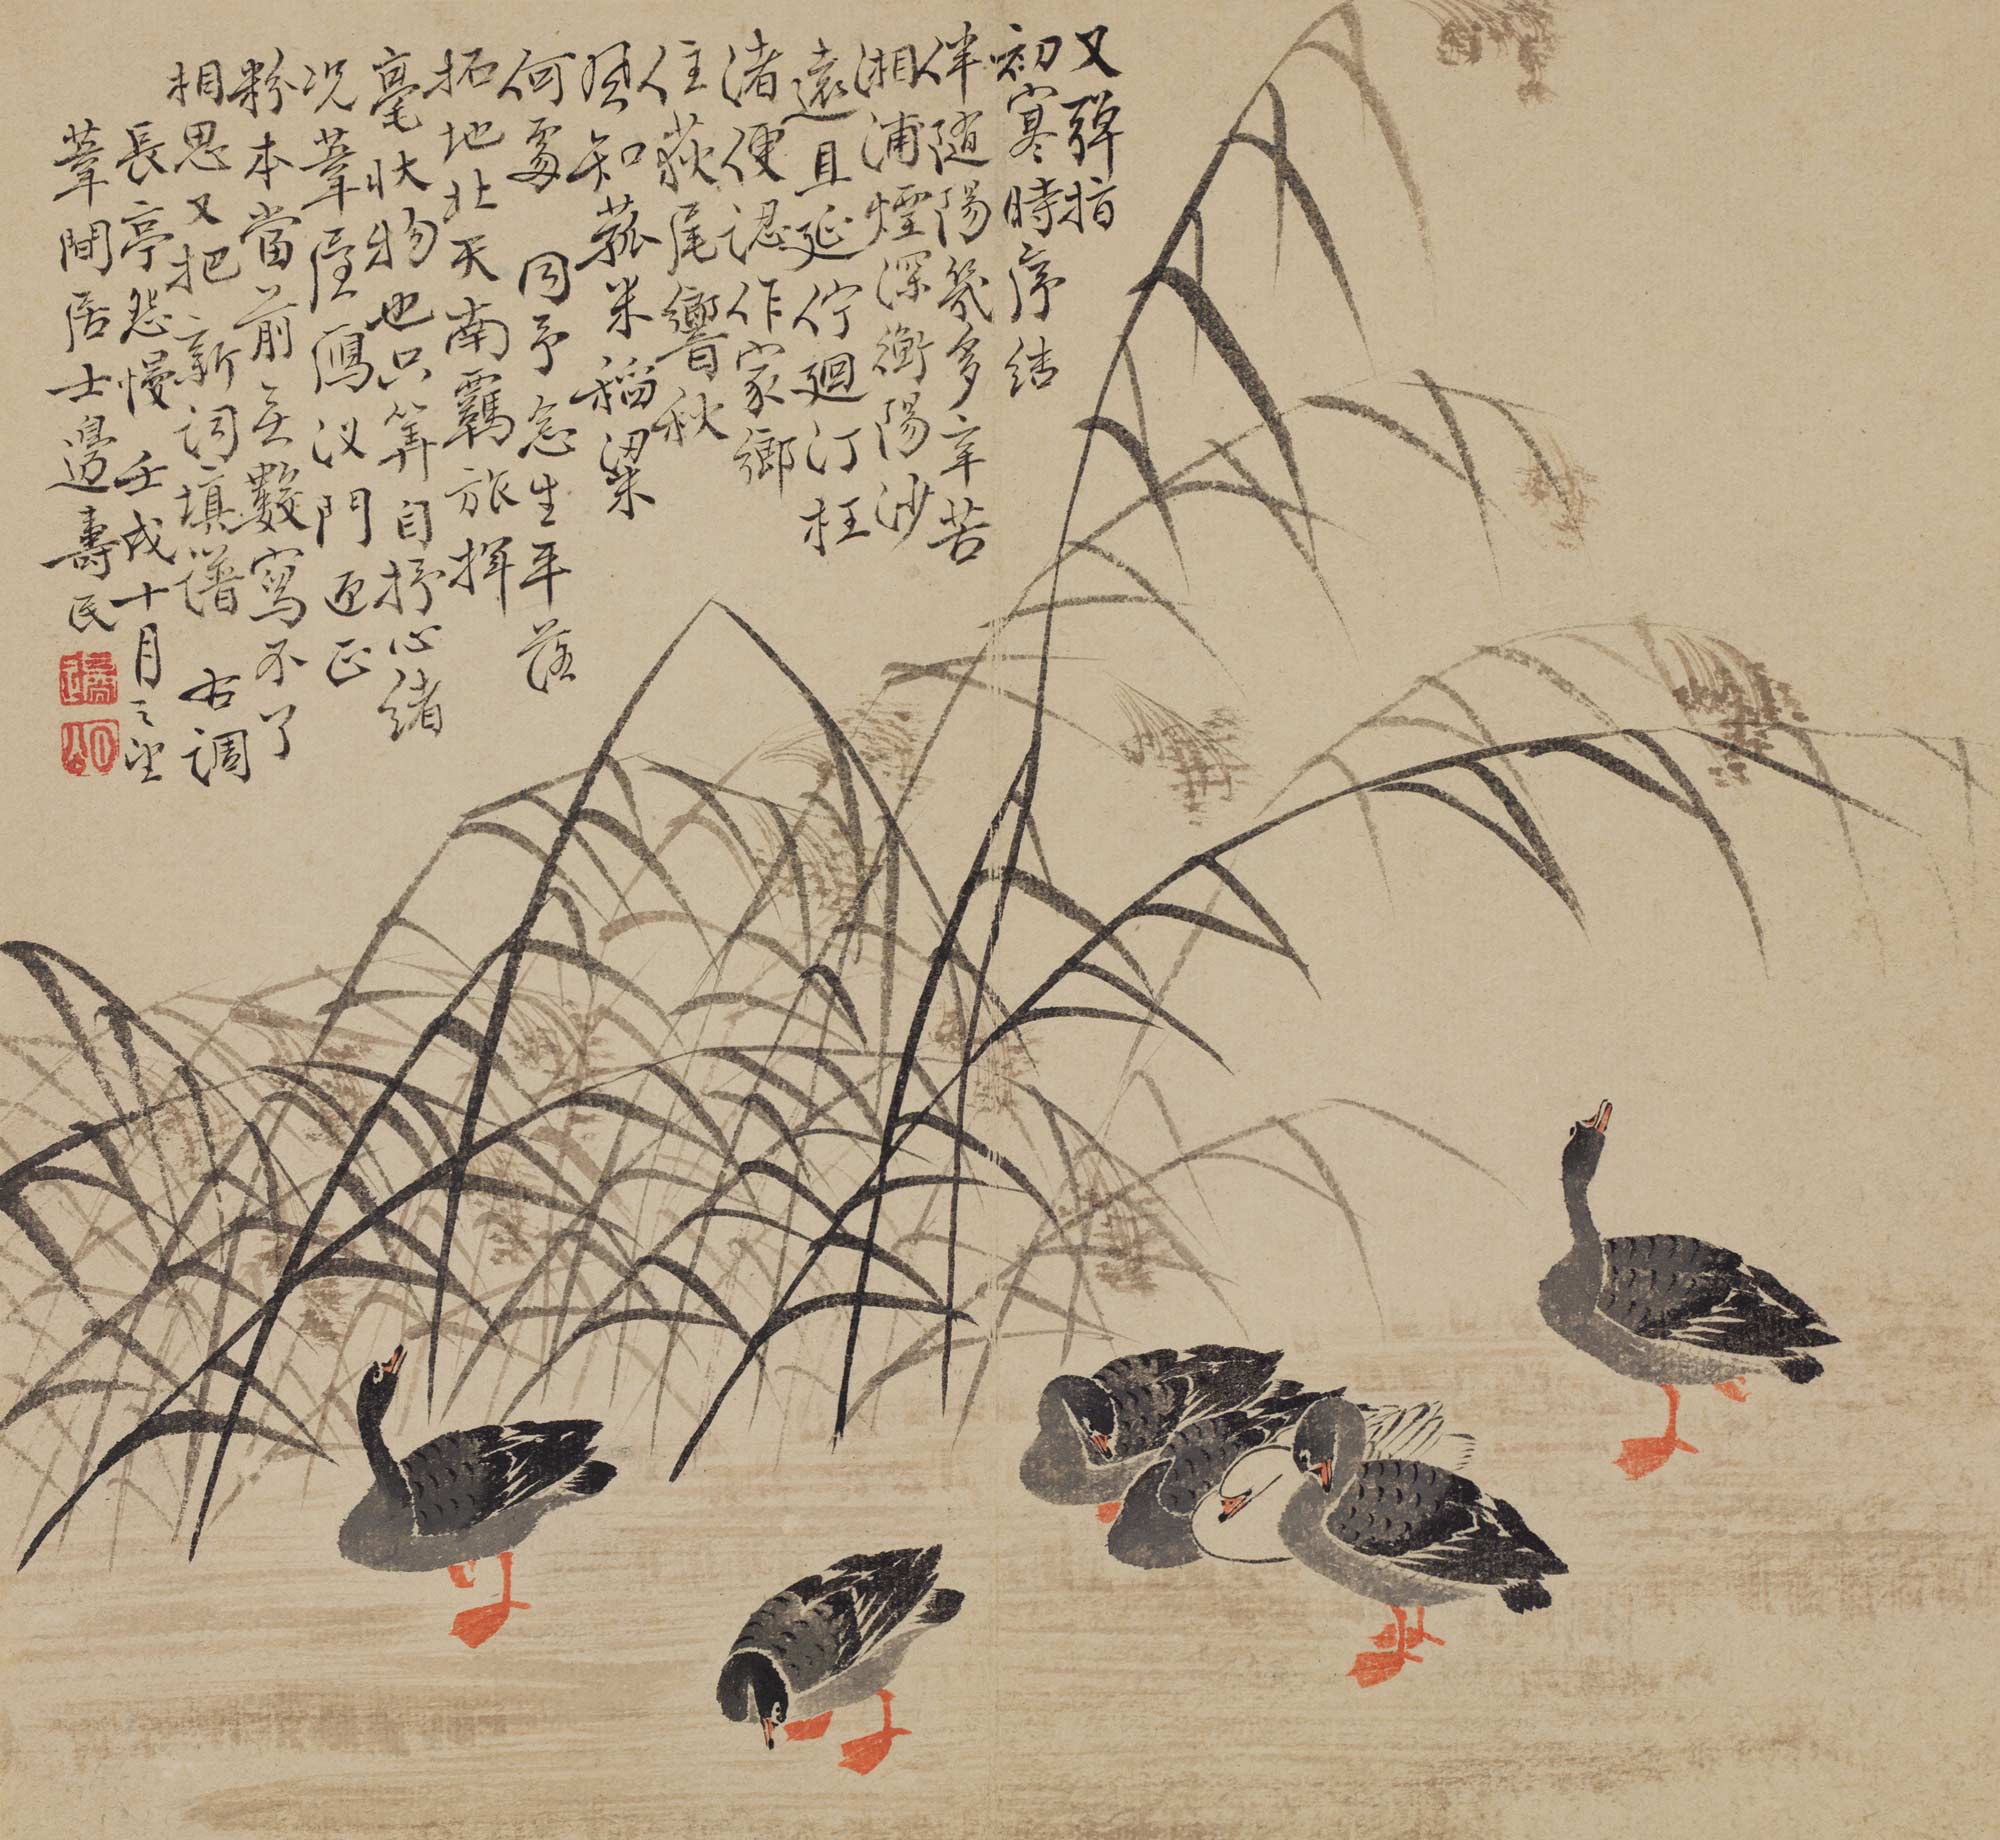 又彈指
初寒時序結
伴随陽幾多辛苦
湘浦煙深衡陽沙
遠且延佇迴汀枉
渚便認作家鄉
住荻尾響秋
風知菰米稻粱
何處 同予念生平落
拓地北天南羈旅揮
毫状物也只算自抒心緒
况葦鴈汊門正
粉本當前无數寫不了
相思又把新詞填譜 右調
長亭怨慢 壬戌十月之望
葦間居士邊壽民